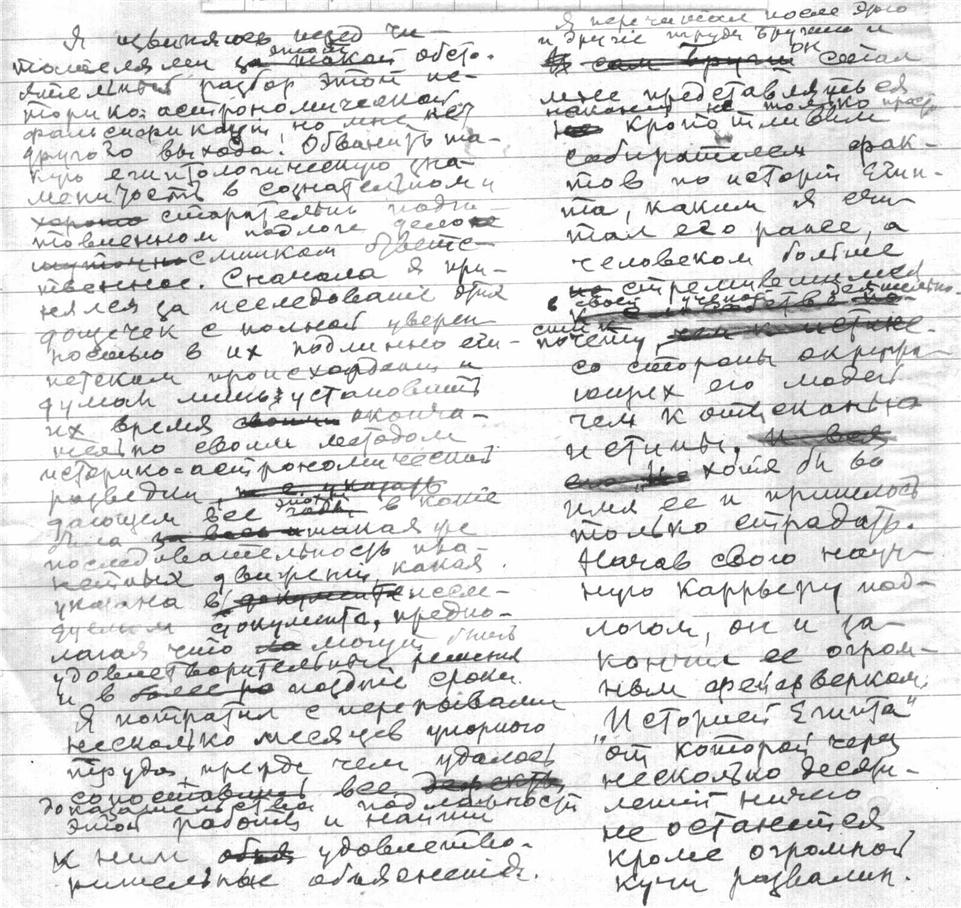 Я извиняюсь перед чи-
тателями за этот такой обсто-
ятельный разбор этой ис-
торико-астрономической
фальсификации, но мне нет
другого выхода! Обвинить та-
кую египтологическую зна-
менитость в сознательном и
хорошо старательно подго-
товленном подлоге дело
слишком ответс-
твенное. Сначала я при-
нялся за исследование этих
дощечек с полной уверен-
ностью в их подлинно еги-
петском происхождении и
думал лишь установить
их время оконча-
тельно своим методом
историко-астрономической
разведки, не указать
дающем все эпохи годы в какие
была такая же
последовательность пла-
нетных движений, какая
указана в документе иссле-
дуемом документе, предпо-
лагая что могут быть
удовлетворительные решения
и в более поздние сроки.
Я потратил с перерывами
несколько месяцев упорного
труда, прежде чем удалось
сопоставить все
доказательства подложности
этой работы и найти
к ним удовлетво-
рительные объяснения.
Я перечитал после этого
и другие труды Бругша и
сам Бругш он стал
мне представляться
наконец не только прост
кропотливым
собирателем фак-
тов по истории Егип-
та, каким я счи-
тал его ранее, а
человеком больше
стремившимся
в своей учено
к почету
со стороны окружа-
ющих его людей
чем к отысканью
истины, и вся
хотя бы во
имя ее и пришлось
только страдать.
Начав свою науч-
ную каррьеру под-
логом, он и за-
кончил ее огром-
ным фейерверком:
"Историей Египта"
от которой через
несколько десяти-
летий ничего
не останется
кроме огромной
кучи развалин.